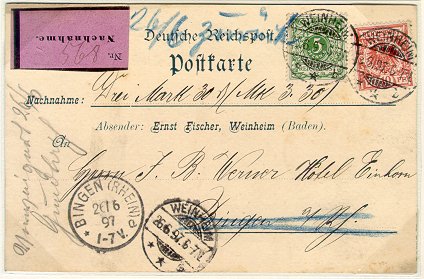 Nr. 568
Nachnahme.
26/6
Deutsche Reichspost.
Postkarte
5
WEINHEIM
WEINHEIM
Nachnahme: Drei Mark 30 ₰ / Mk 3.30
Absender: Ernst Fischer, Weinheim (Baden).
An
Herrn J. B. Werner Hotel Einhorn
Bingen a/Rh.
BINGEN (RHEIN)
26/6
97
1-7V.
WEINHEIM
26.6.97.6-7N